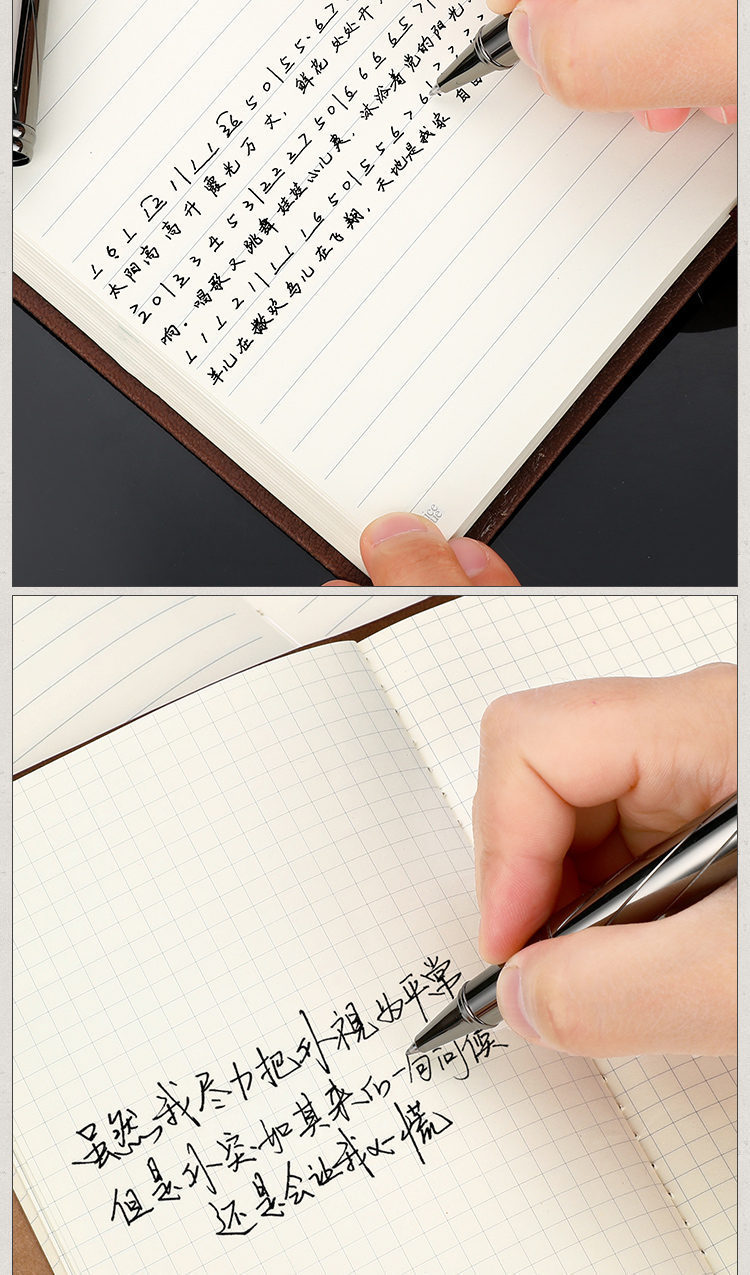 1 6 1 1 2 1 1 1 1 3 6 5 0 | 5 5 · 6 7
太阳高高升霞光万丈，鲜花处处开
2 0 | 2 3 4 5 3 | 2 2 2 7 5 0 | 6 6 6 5 7 |
响．唱歌又跳舞娃娃心儿爽，沐浴着党的阳光
1 1 1 2 1 | 1 1 1 6 5 0 | 5 5 6 7 6 |
羊儿在撒欢鸟儿在飞翔，天地是我家自由
虽然我尽力把你视为平常
但是你突如其来的一句问候
还是会让我心慌